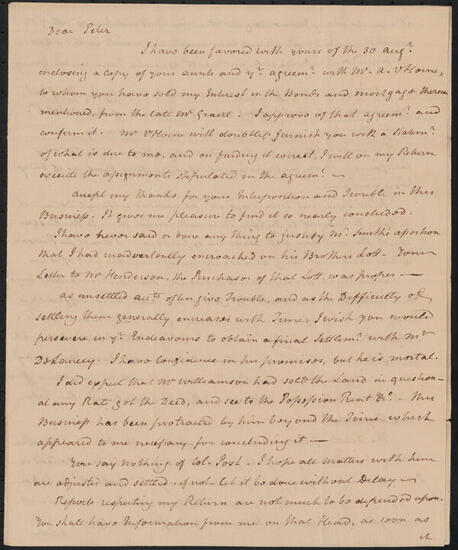 Dear Peter
I have been favored with yours of the 30 Augt.
enclosing a copy of your aunts and yr. agreemt. with Mr. A. V Horne,
to whom you have sold my Interest in the Bonds and mortgage therein
mentioned, from the late Mr. Grant. I approve of that agreemt. and
confirm it. Mr VHorne will doubtless furnish you with a Statemt.
of what is due to me, and on finding it correct, I will on my Return
execute the assignments stipulated in the agreemt. —
accept my thanks for your Interposition and Trouble in this
Business. It gives me pleasure to find it so nearly concluded.
I have never said or done any thing to justify Mr. Smith's assertion
that I had inadvertently encroached on his Brothers Lott. Your
Letter to Mr Henderson, the Purchasor of that Lott, was proper —
as unsettled accts. often give Trouble, and as the Difficulty of
settling them generally encreases with Time, I wish you would
persevere in yr. Endeavours to obtain a final Settlemt. with Mr
DeLancey. I have confidence in his promises, but he is mortal.
I did expect that Mr Williamson had sold the Land in question—
at any Rate got the Deed, and see to the Possession Rent &c. — This
Business has been protracted by him beyond the Time which
appeared to me necessary for concluding it —
You say nothing of Col. Post. I hope all matters with him
are adjusted and settled — if not let it be done without Delay —
Reports respecting my Return are not much to be depended upon.
You shall have Information from me on that Head, as soon as